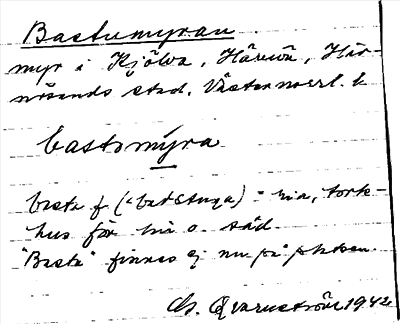 Bastumyran
myr i Kjölva, Härnön, Här-
nösands stad, Västernorrl. l.
bastomýra
basta f (= badstuga) = ria, tork-
hus för lin o. säd.
"Basta" finnes ej nu på platsen.
G. Qvarnström 1942